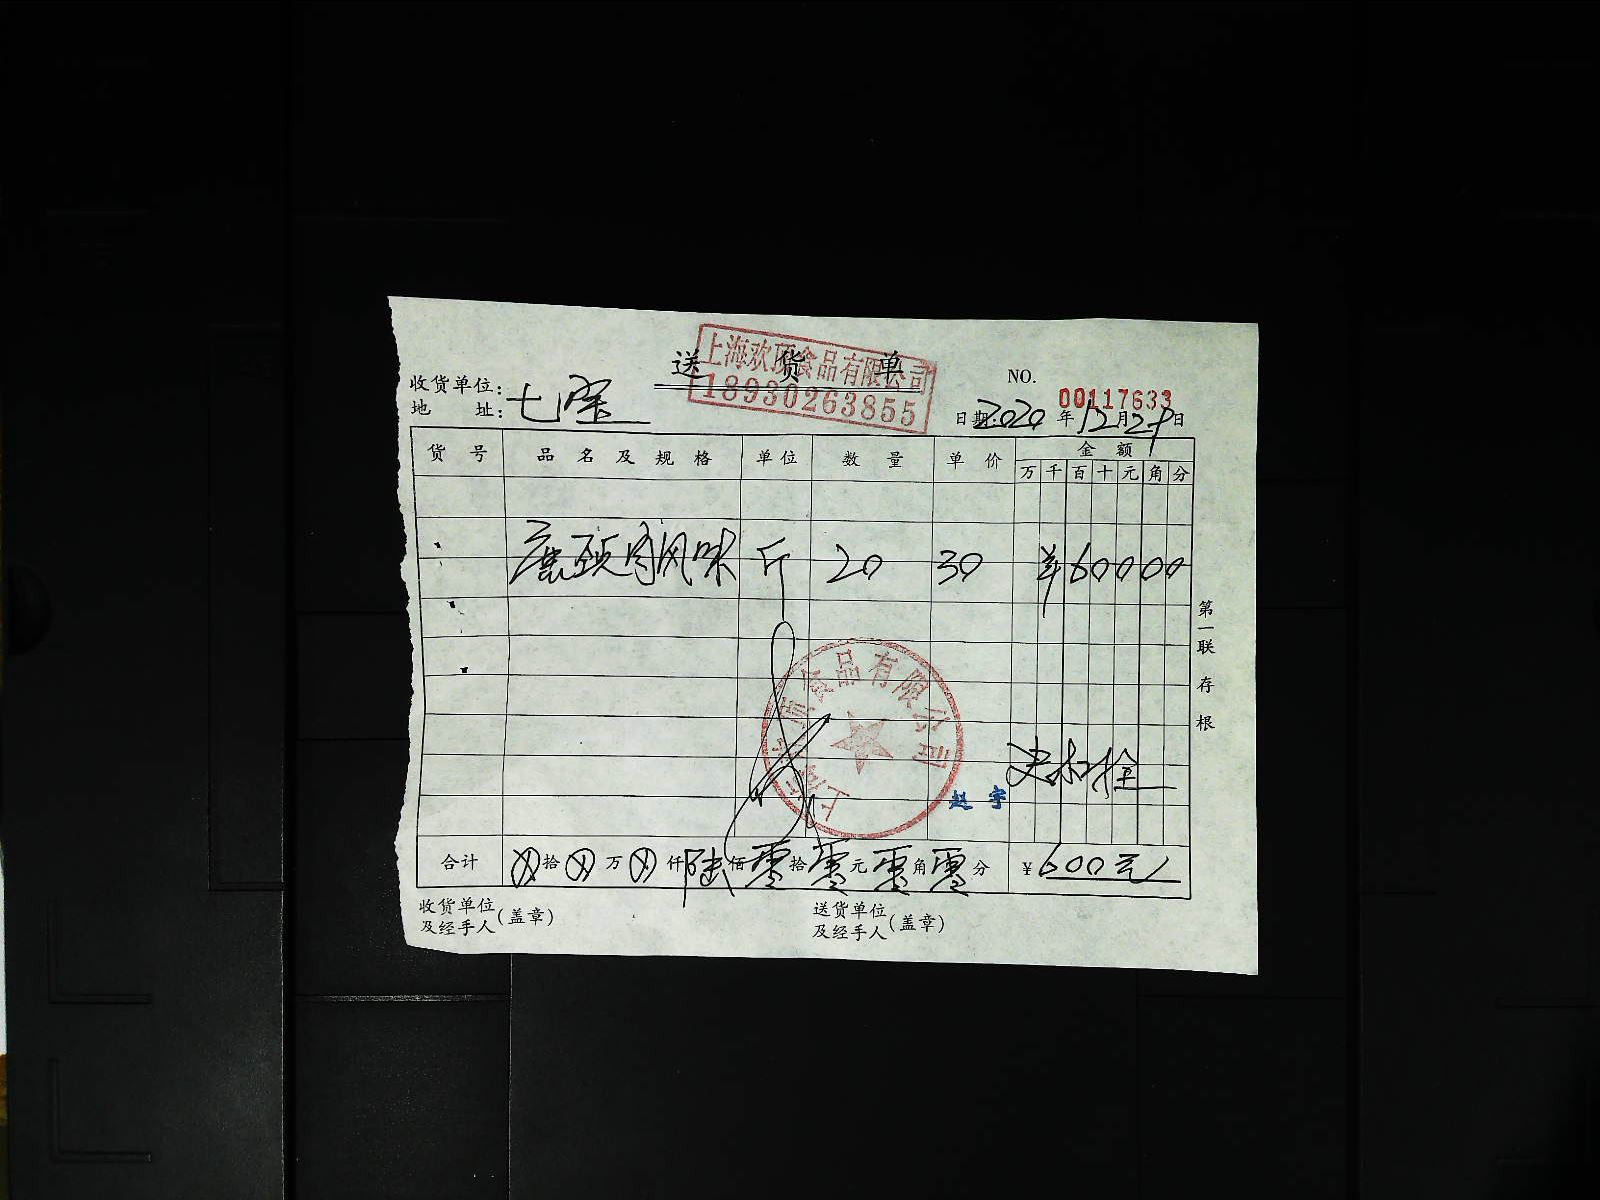 送 货 单
上海欢顶食品有限公司
18930263855
NO.
00117633
收货单位:
地 址:
七宝
日期:2020年12月29日
货 号 品 名 及 规 格 单位 数 量 单 价 金 额
万 千 百 十 元 角 分
风味 斤 20 30 ¥60000
第一联 存根
顶食品有限公司
赵宇
合计 ⊗拾⊗万⊗仟陆佰零拾零元零角零分 ¥600元
收货单位
及经手人(盖章)
送货单位
及经手人(盖章)